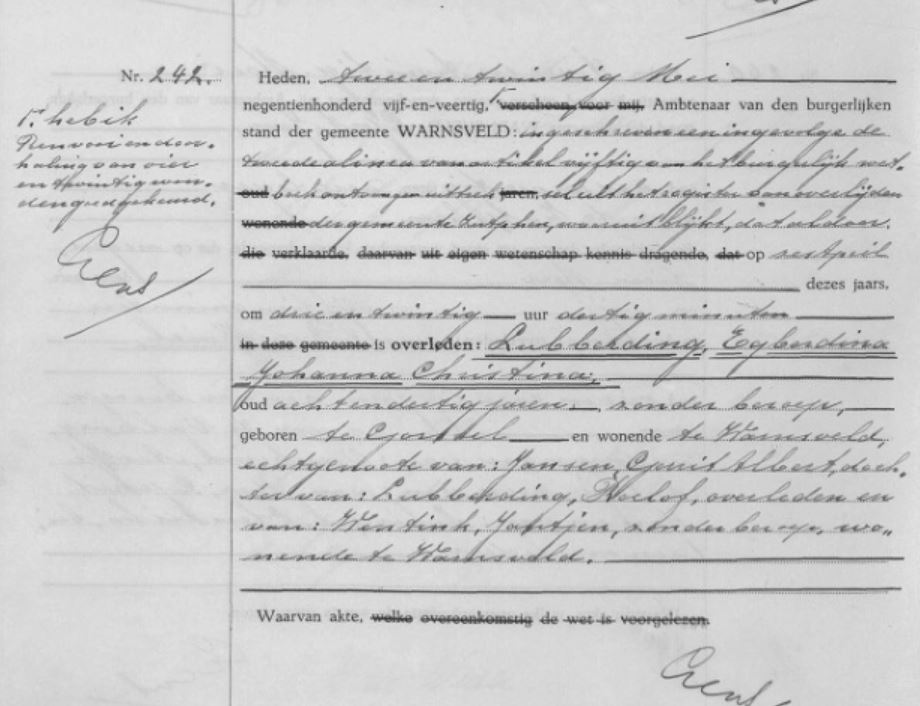 Nr. 242.
Heden, twee en twintig Mei
negentienhonderd vijf-en-veertig, ⌈ verscheen voor mij, Ambtenaar van den burgerlijken
stand der gemeente WARNSVELD: ingeschreven een ingevolge de
tweede alinea van artikel vijftig van het burgerlijk wet-
oud boek ontvangen uittrek jaren, sel uit het register van overlijden
wonende der gemeente Zutphen, waaruit blijkt, dat aldaar.
die verklaarde, daarvan uit eigen wetenschap kennis dragende, dat op
dezes jaars,
om drie en twintig uur dertig minuten
in deze gemeente is overleden: Lubberding, Egberdina
Johanna Christina,
oud acht en dertig jaren, zonder beroep,
geboren te Gorssel en wonende te Warnsveld,
echtgenoote van: Jansen, Gerrit Albert, doch-
ter van: Lubberding, Roelof, overleden en
van: Wentink, Jantjen, zonder beroep, wo-
nende te Warnsveld.
Waarvan akte, welke overeenkomstig de wet is voorgelezen.
⌈ heb ik
Renvooi en door-
haling van vier
en twintig woor-
den goedgekeurd.